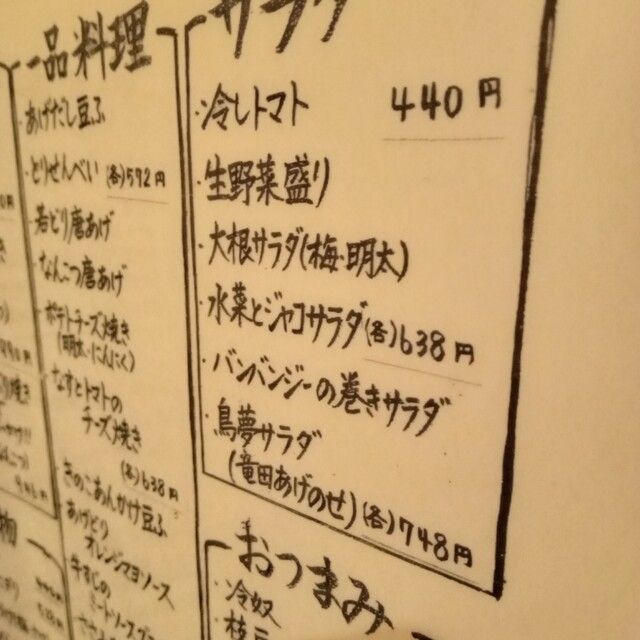 一品料理
・あげだし豆ふ
・とりせんべい (各)572円
・若どり唐あげ
・なんこつ唐あげ
・ポテトチーズ焼き
(明太・にんにく)
・なすとトマトの
チーズ焼き
(各)638円
きのこあんかけ豆ふ
あげどり
オレンジマヨソース
牛すじの
サラダ
・冷しトマト 440円
・生野菜盛り
・大根サラダ(梅・明太)
・水菜とジャコサラダ(各)638円
・バンバンジーの巻きサラダ
・鳥夢サラダ
(竜田あげのせ)(各)748円
おつまみ
・冷奴